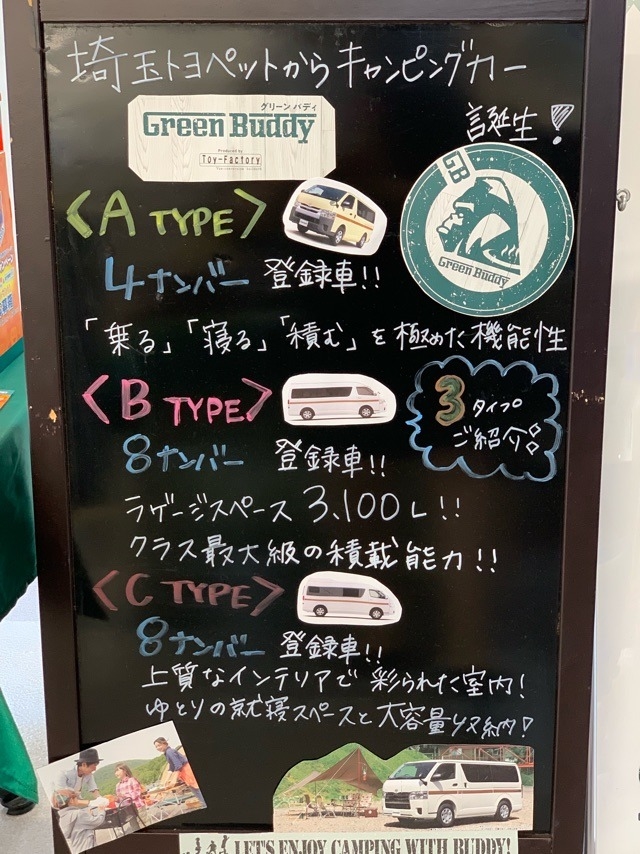 埼玉トヨペットからキャンピングカー
誕生!
グリーン バディ
Green Buddy
Produced by
Toy-Factory
GB
Green Buddy
<A TYPE>
4ナンバー 登録車!!
「乗る」「寝る」「積む」を極めた機能性
<B TYPE>
3タイプ
ご紹介!
8ナンバー 登録車!!
ラゲージスペース 3,100L!!
クラス最大級の積載能力!!
<C TYPE>
8ナンバー 登録車!!
上質なインテリアで彩られた室内!
ゆとりの就寝スペースと大容量収納!
LET'S ENJOY CAMPING WITH BUDDY!